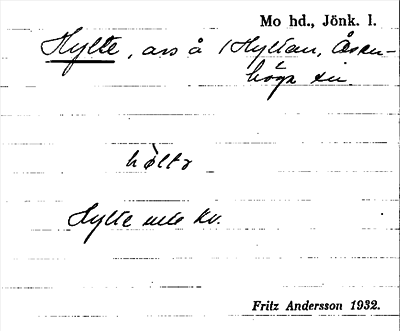 Mo hd., Jönk. l.
Hylte, avs å 1 Hyltan, Åsen-
höga sn.
hòltə
Hylte utb kv.
Fritz Andersson 1932.